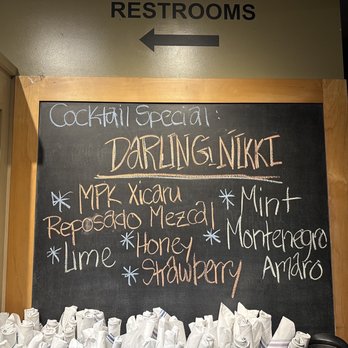 RESTROOMS
Cocktail Special:
DARLING NIKKI
* MPK Xicaru
Reposado Mezcal
* Lime
* Honey
* Strawberry
* Mint
* Montenegro
Amaro